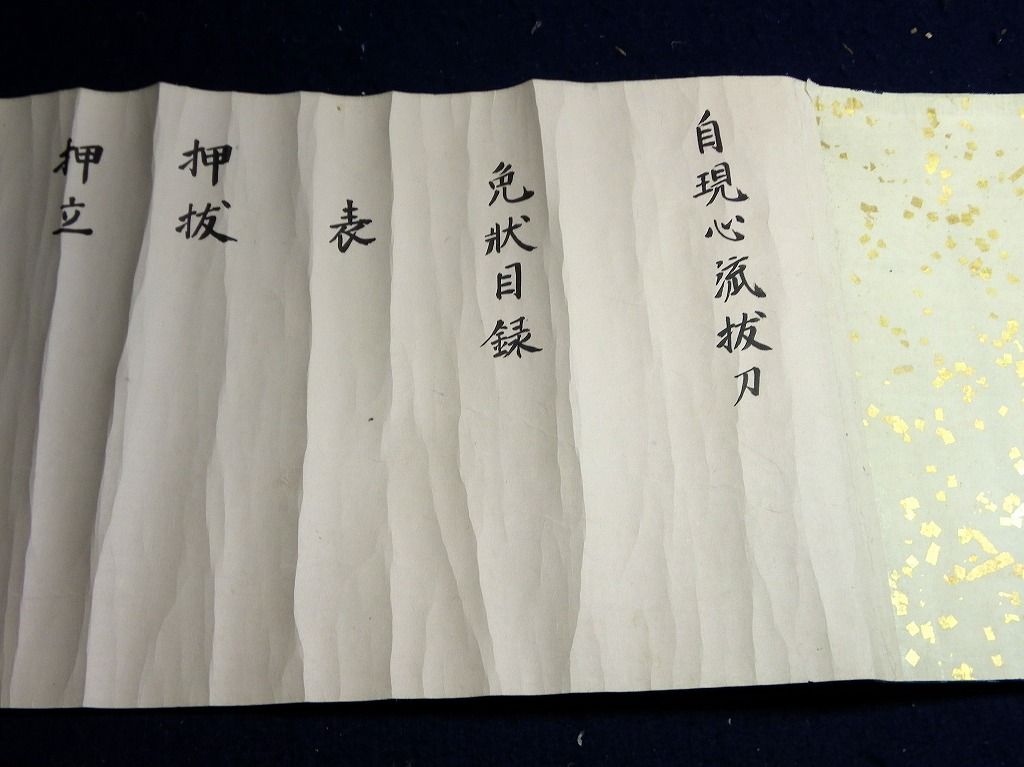 自現心流抜刀
免狀目録
表
押抜
押立